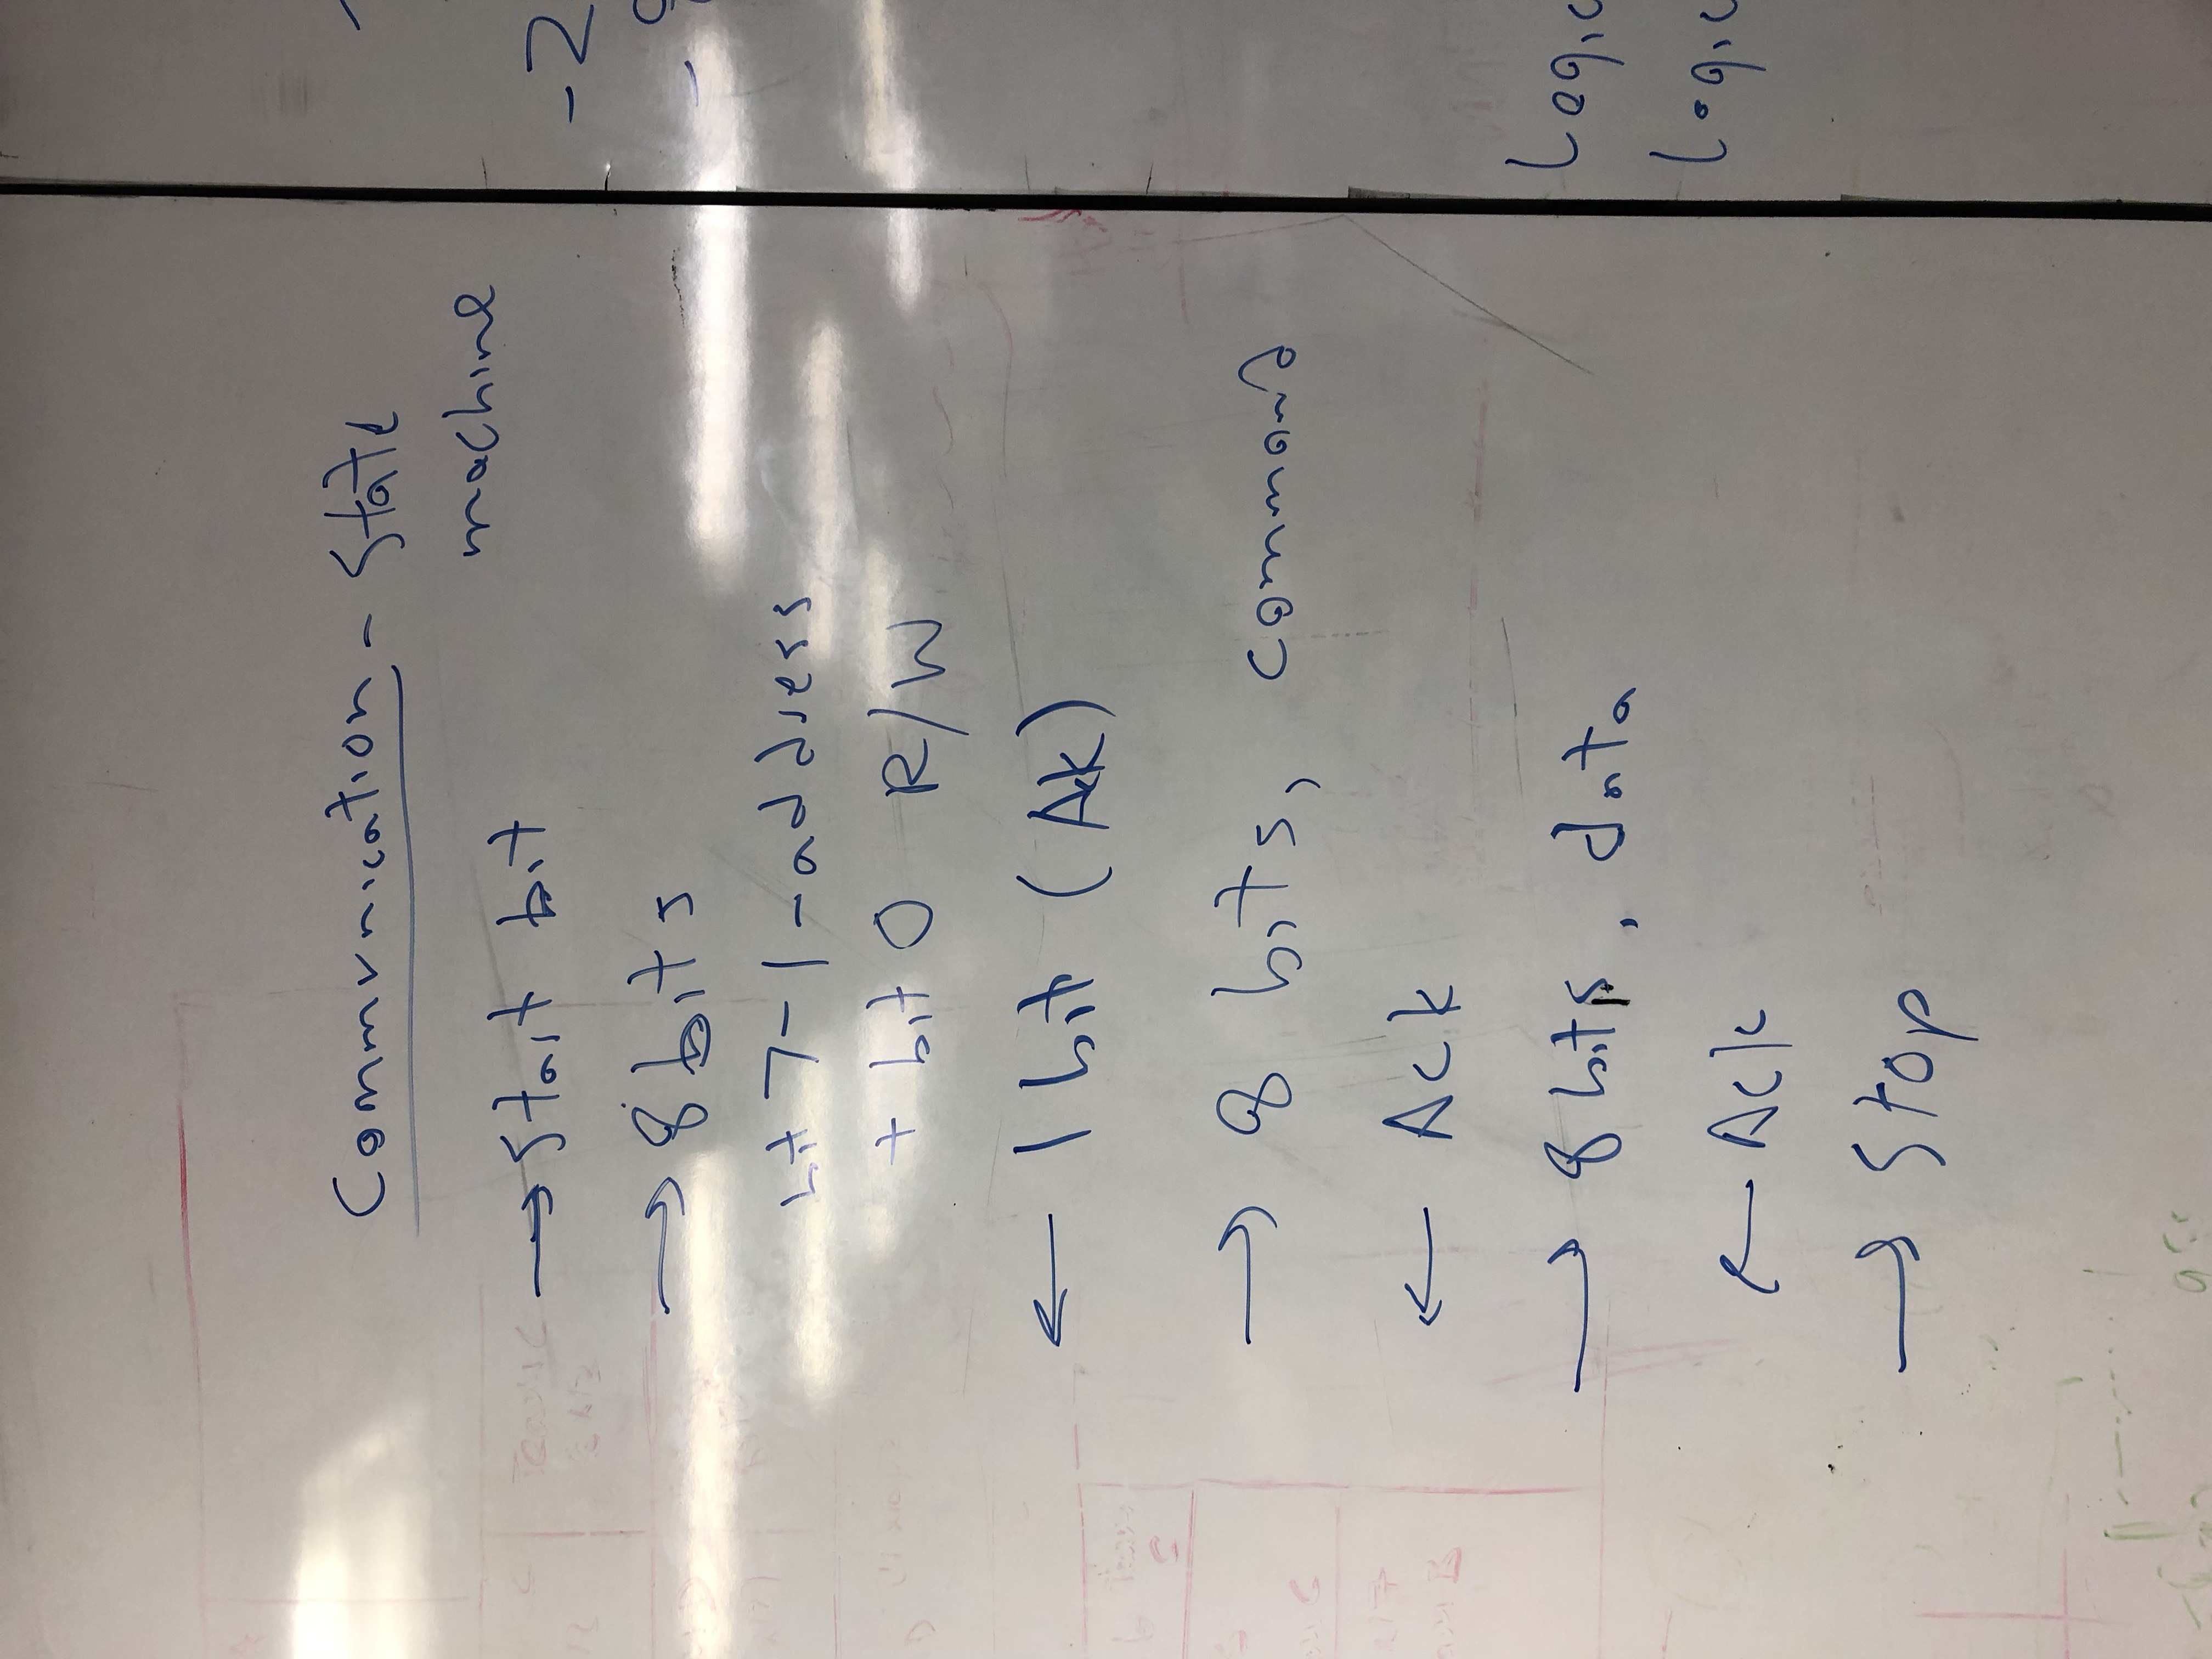 Communication - State
machine
→ Start bit
→ 8 bits
bit 7-1 - address
+ bit 0 R/W
← 1 bit (Ack)
→ 8 bits, command
← Ack
→ 8 bits, data
← Ack
→ Stop
-2
Logic
Logic